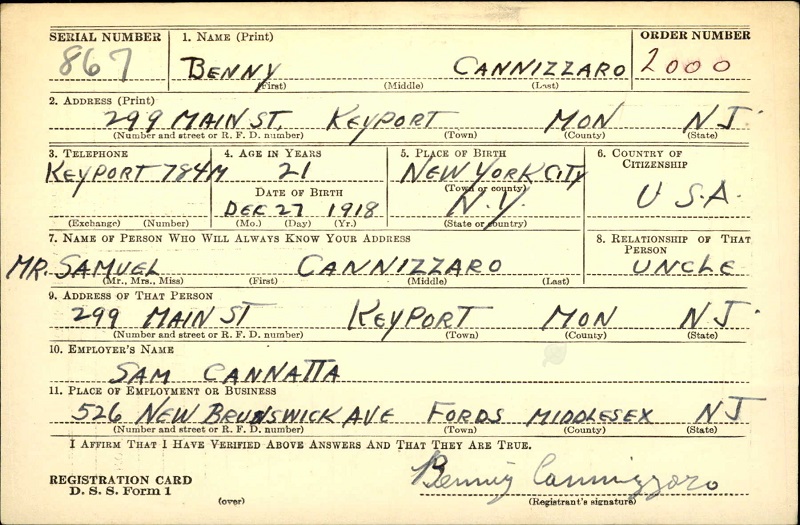 SERIAL NUMBER 1. NAME (Print) ORDER NUMBER
867 BENNY CANNIZZARO 2000
(First) (Middle) (Last)
2. ADDRESS (Print)
299 MAIN ST. KEYPORT MON NJ
(Number and street or R. F. D. number) (Town) (County) (State)
3. TELEPHONE 4. AGE IN YEARS 5. PLACE OF BIRTH 6. COUNTRY OF CITIZENSHIP
KEYPORT 784M 21 NEW YORK CITY USA.
DATE OF BIRTH (Town or county)
DEC 27 1918 N.Y.
(Exchange) (Number) (Mo.) (Day) (Yr.) (State or country)
7. NAME OF PERSON WHO WILL ALWAYS KNOW YOUR ADDRESS 8. RELATIONSHIP OF THAT PERSON
MR. SAMUEL CANNIZZARO UNCLE
(Mr., Mrs., Miss) (First) (Middle) (Last)
9. ADDRESS OF THAT PERSON
299 MAIN ST KEYPORT MON NJ.
(Number and street or R. F. D. number) (Town) (County) (State)
10. EMPLOYER'S NAME
SAM CANNATTA
11. PLACE OF EMPLOYMENT OR BUSINESS
526 NEW BRUNSWICK AVE FORDS MIDDLESEX NJ
(Number and street or R. F. D. number) (Town) (County) (State)
I AFFIRM THAT I HAVE VERIFIED ABOVE ANSWERS AND THAT THEY ARE TRUE.
REGISTRATION CARD Benny Cannizzaro
D. S. S. Form 1 (over) (Registrant's signature)